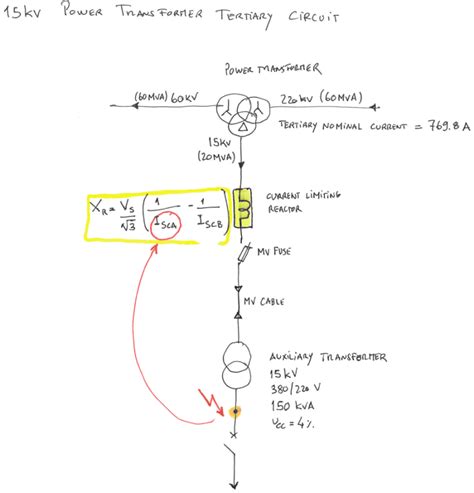 15kV POWER TRANSFORMER TERTIARY CIRCUIT
POWER TRANSFORMER
(60MVA) 60KV
220KV (60MVA)
TERTIARY NOMINAL CURRENT = 769.8 A
15KV
(20MVA)
X_R = V_S/√3 (1/I_SCA - 1/I_SCB)
CURRENT LIMITING
REACTOR
MV FUSE
MV CABLE
AUXILIARY TRANSFORMER
15 KV
380/220 V
150 KVA
U_CC = 4%